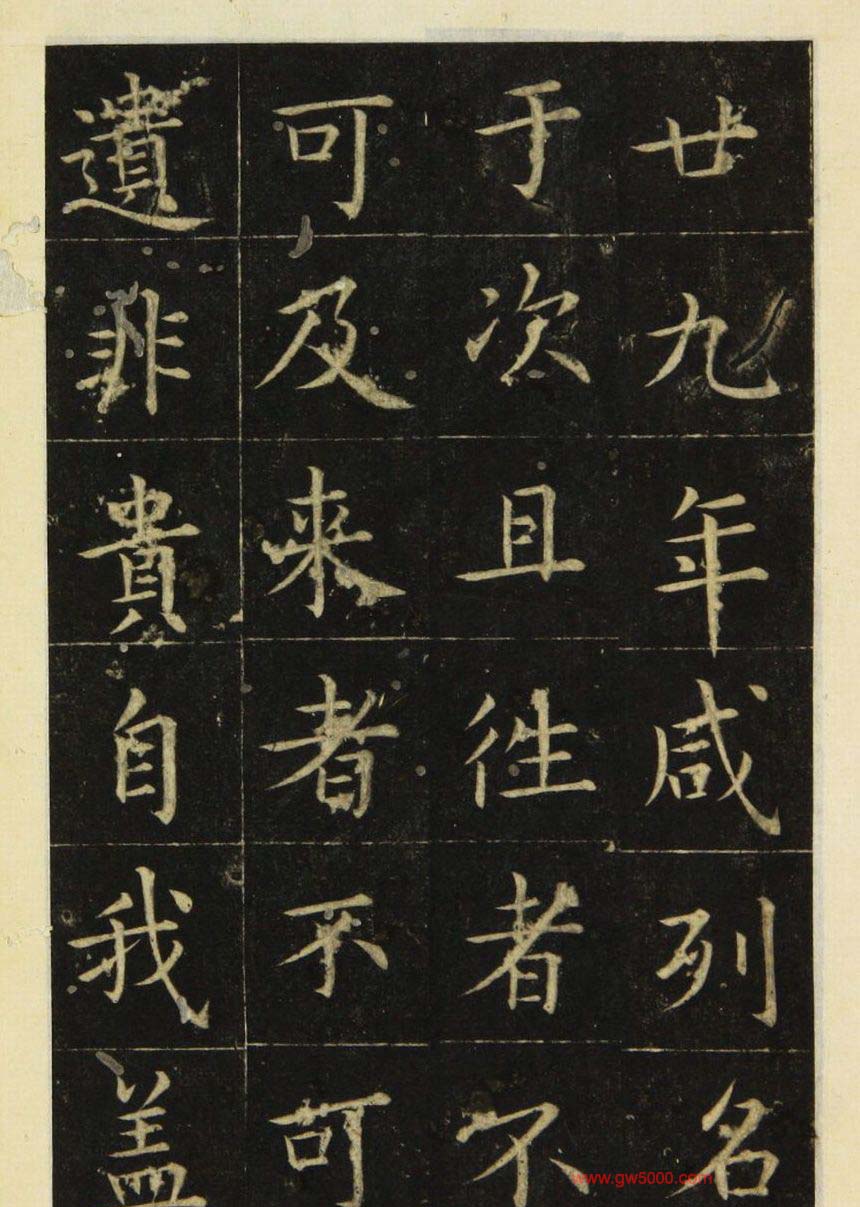 廿九年咸列名
于次且往者不
可及来者不可
遺非貴自我盖
www.gw5000.com